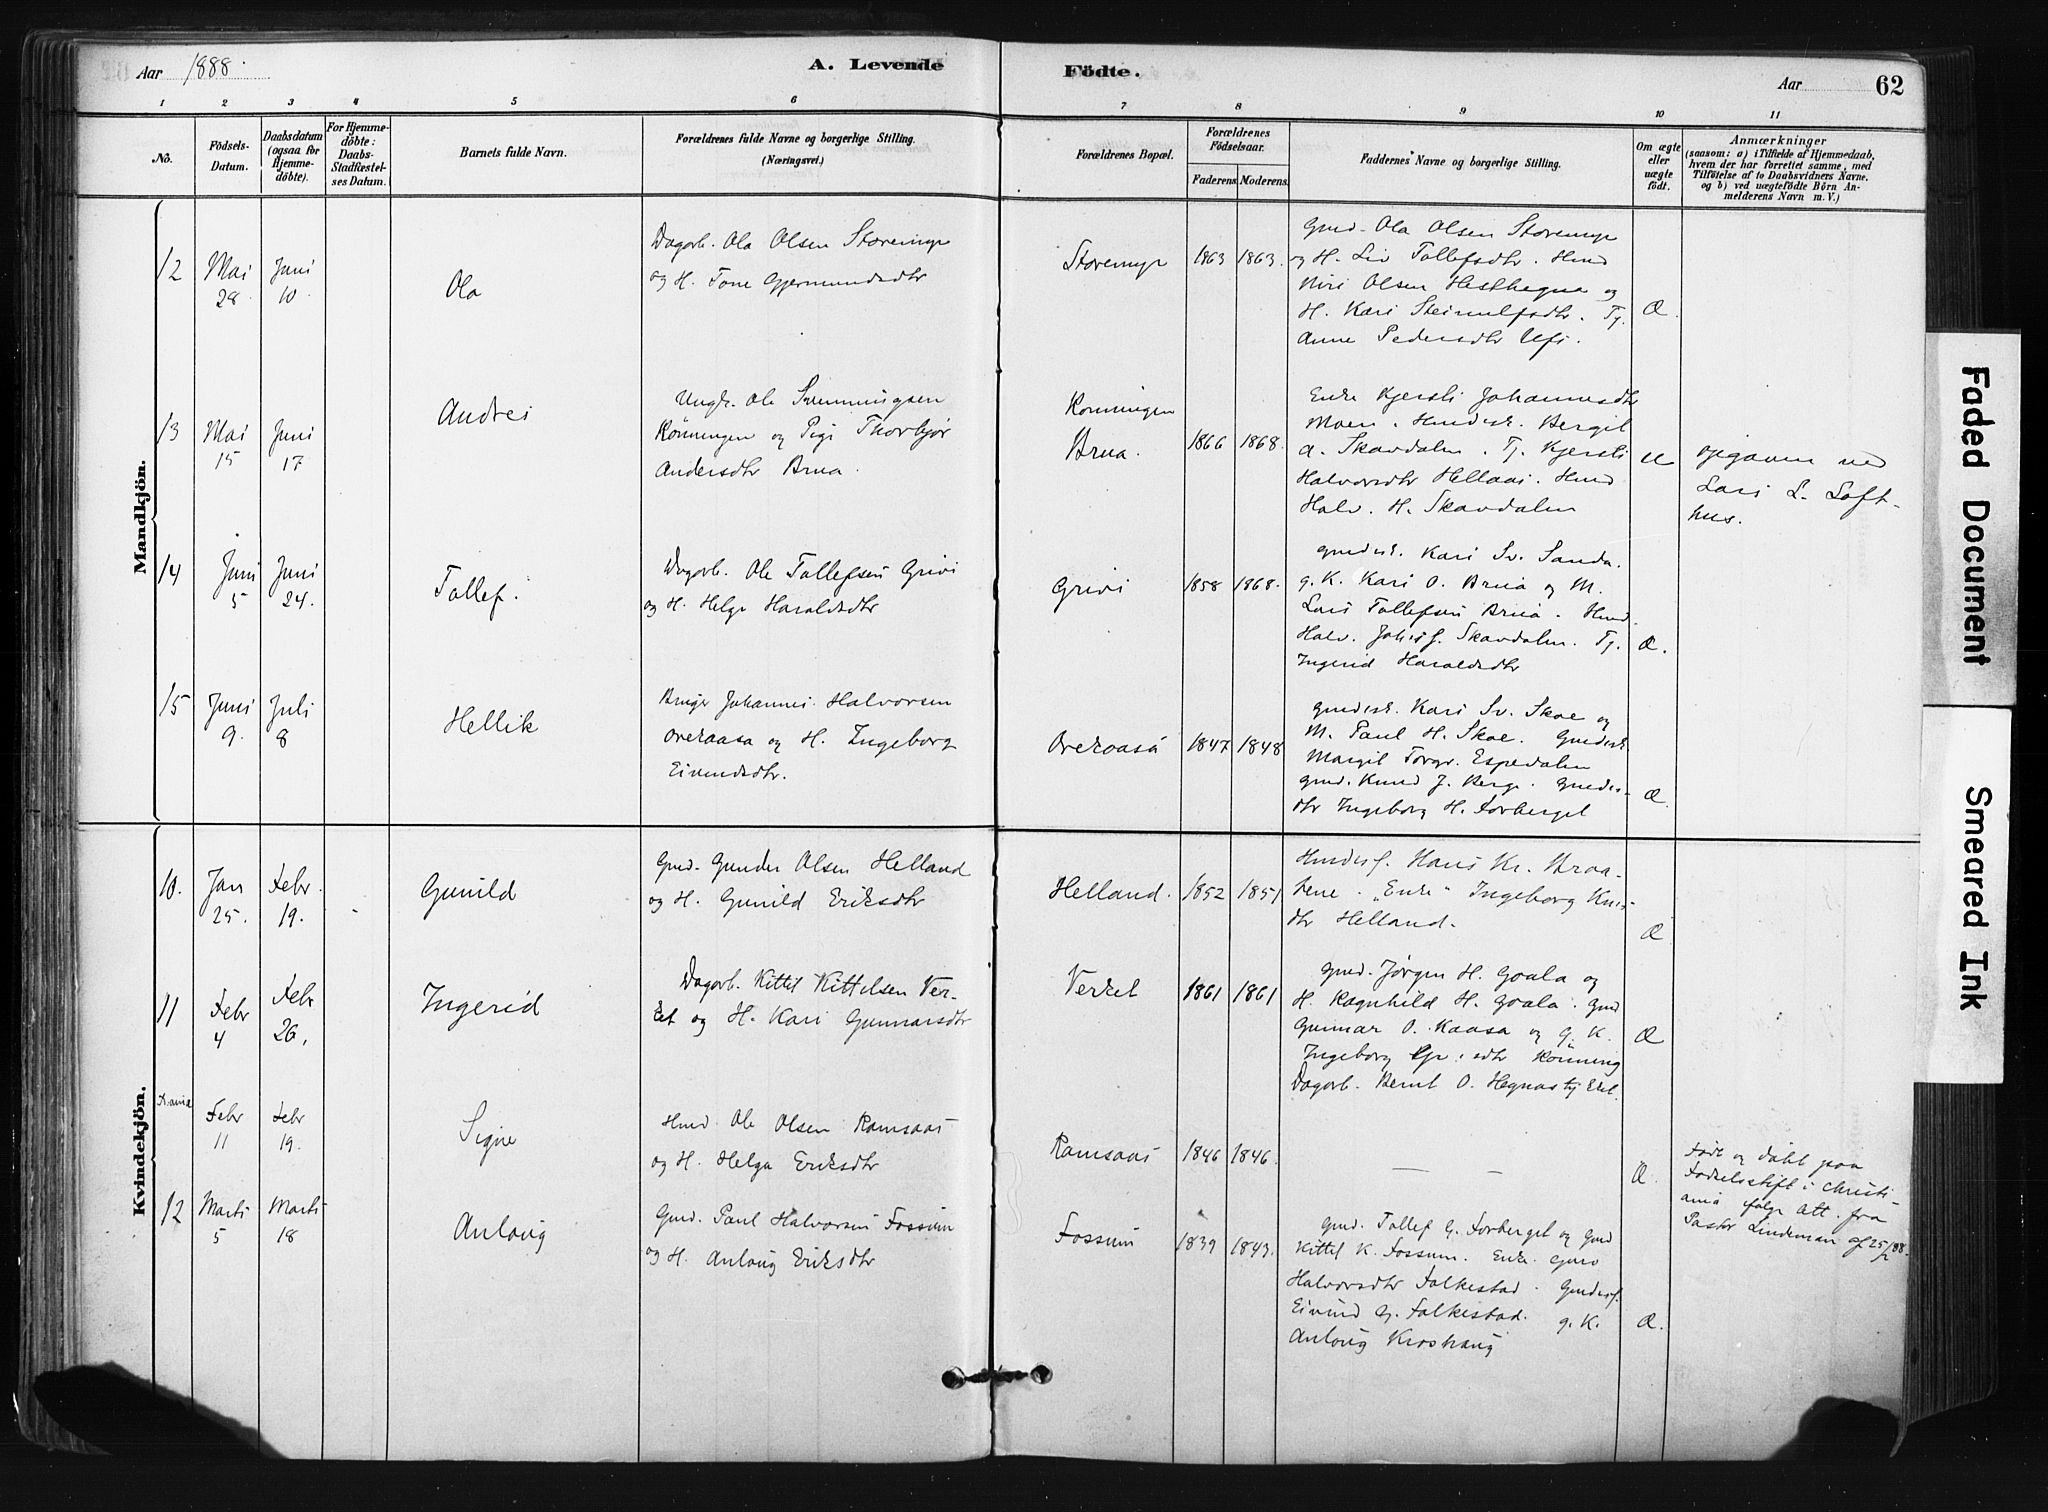 Aar 1888.
A. Levende Födte.
Aar 62
1 2 3 4 5 6 7 8 9 10 11
No.
Födsels-Datum.
Daabsdatum (ogsaa for Hjemme-döbte).
For Hjemme-döbte: Daabs-Stadfæstel-ses Datum.
Barnets fulde Navn.
Forældrenes fulde Navne og borgerlige Stilling.
(Næringsvei.)
Forældrenes Bopæl.
Forældrenes Födselsaar.
Faderens. Moderens.
Faddernes Navne og borgerlige Stilling.
Om ægte eller uægte födt.
Anmærkninger
(saasom: a) i Tilfælde af Hjemmedaab,
hvem der har forrettet samme, med
Tilföielse af to Daabsvidners Navne.
og b) ved uægtefödte Börn An-
melderens Navn m. V.)
Mandkjön.
12 Mai 28 Juni 10. Ola
Dagarb. Ola Olsen Storemyr
og H. Tone Gjermundsdtr
Storemyr 1863 1863.
Gmd. Ola Olsen Storemyr
og H. Liv Tollefsdtr. Hmd
Niri Olsen Hesthagna og
H. Kari Steinulfsdtr. Tj.
Anne Pedersdtr Ufs.
Æ.
13 Mai 15 Juni 17 Andres
Ungk. Ole Svenningsen
Rönningen og Pige Thorbjör
Andersdtr Brua.
Ronningen
Brua. 1866 1868.
Enke Kjersti Johannesdtr
Moen. Hmdsk. Bergit
A. Skavdalen. Tj. Kjersti
Halvorsdtr Hellaas. Hmd
Halv. H. Skavdalen
U
opgaven ved
Lars L. Loft-
hus.
14 Juni 5 Juni 24. Tollef.
Dagarb. Ole Tollefsen Grivi
og H. Helge Haraldsdtr
Grivi 1858 1868.
Gmdsk. Kari Sv. Sanda.
g. K. Kari O. Brua og M.
Lars Tollefsen Brua. Hmd.
Halv. Johs. Skavdalen. Tj.
Ingerid Haraldsdtr
Æ.
15 Juni 9. Juli 8 Hellik
Bruger Johannes Halvorsen
Overaasa og H. Ingeborg
Eivindsdtr.
Overaasa 1847 1848
Gmdsk. Kari Sv. Skoe og
M. Paul H. Skoe. Gmdsk.
Margit Torgr. Espedalen
Gmd. Knud J. Berge. Gmds-
dtr Ingeborg H. Forberget
Æ.
Kvindekjön.
10. Jan 25. Febr. 19. Gunild
Gmd. Gunder Olsen Helland
og H. Gunild Eriksdtr
Helland. 1852 1851
Hmdsf. Hans Kr. Braa-
tene. "Enke" Ingeborg Kns-
dtr Helland.
Æ
11 Febr 4 Febr 26. Ingerid
Dagarb. Kittel Kittelsen Ver-
ket og H. Kari Gunnarsdtr
Verket 1861 1861
Gmd. Jörgen H. Goala og
H. Ragnhild H. Goala. Gmd
Gunnar O. Kaasa og g. K.
Ingeborg sdtr Rönning
Dagarb. Bernt O. Hegna
Æ
Febr 11 Febr 19. Signe
Hmd Ole Olsen Ramsaas
og H. Helga Eriksdtr
Ramsaas 1846 1846.
— —
Æ.
Födt og döbt paa
Födselsstift. i Christi-
ania fölge Att. fra
Pastor Lindeman af 25/2 88.
12 Marts 5 Marts 18 Anlaug
Gmd. Paul Halvorsen Fossum
og H. Anlaug Eriksdtr
Fossum 1839 1843.
Gmd. Tollef G. Forberget og Gmd
Kittel K. Fossum. Enke Guro
Halvorsdtr Folkestad. Gmdsf.
Eivind G. Folkestad. g. K.
Anlaug Kroshaug
Æ.
Faded Document
Smeared Ink